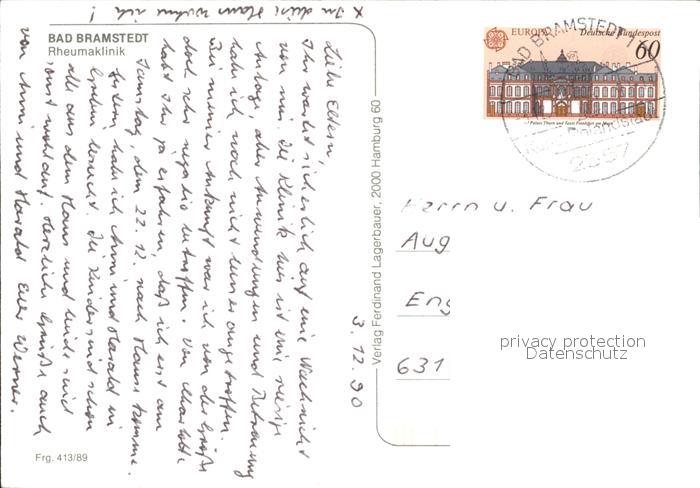 BAD BRAMSTEDT
Rheumaklinik
Liebe Eltern,
Ihr wartet sicherlich auf eine Nachricht
von mir. Die Klinik hier ist eine riesige
Anlage, aber Anwendungen und Betreuung
habe ich noch nicht besser angetroffen.
Bei meiner Ankunft war ich von der Größe
doch sehr negativ betroffen. Von
habt Ihr ja erfahren, daß ich erst am
Samstag, dem 22.12. nach Hause komme.
Gestern habe ich Anni und Harald in
besucht. Die Kinder sind schon
alle aus dem Haus und beide sind
sonst wohlauf. Herzliche Grüße auch
von Anni und Harald Euer Werner.
x In dein Haus wohne ich!
3.12.90
Frg. 413/89
Verlag Ferdinand Lagerbauer, 2000 Hamburg 60
EUROPA Deutsche Bundespost
60
Palais Thurn und Taxis Frankfurt am Main
BAD BRAMSTEDT 1
2357
Herrn u. Frau
Aug
Eng
631
privacy protection
Datenschutz